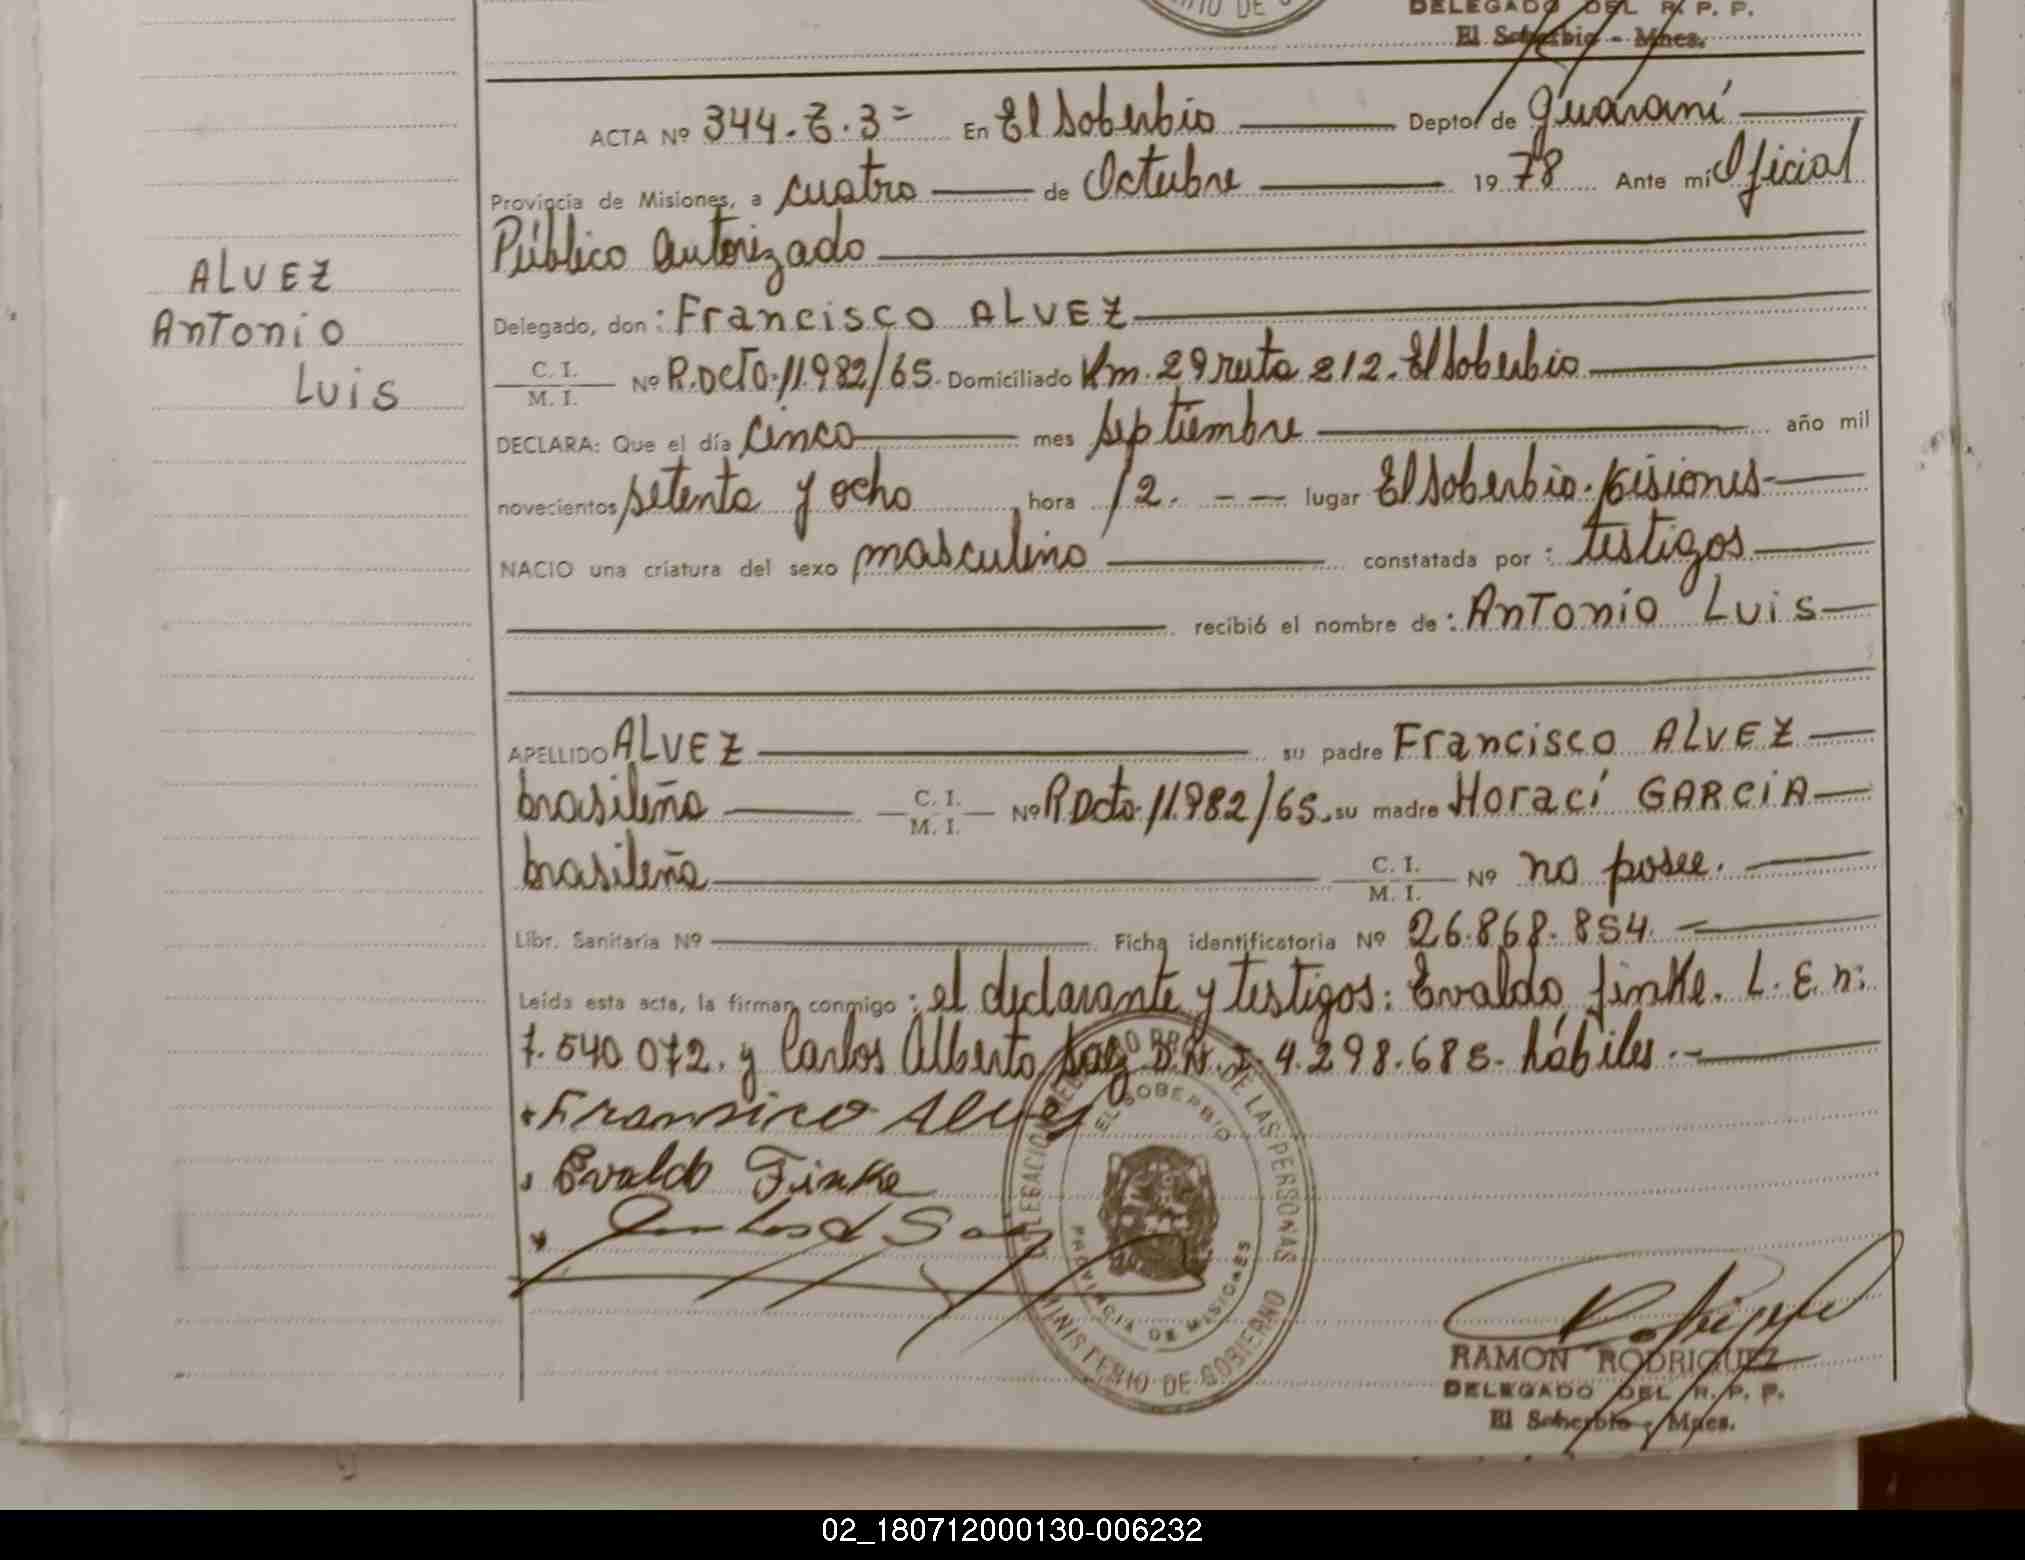 DELEGADO DEL R. P. P.
El Soberbio - Mnes.
ACTA Nº 344.T.3= En El Soberbio Depto. de Guaraní
Provincia de Misiones, a cuatro de Octubre 19 78 Ante mí Oficial
Público autorizado
ALVEZ
Antonio
Luis
Delegado, don: Francisco ALVEZ
C. I.
M. I. Nº R.Dcto.11.982/65. Domiciliado Km. 29 ruta 212. El Soberbio
DECLARA: Que el día cinco mes septiembre año mil
novecientos setenta y ocho hora 12. lugar El Soberbio. Misiones
NACIO una criatura del sexo masculino constatada por: testigos
recibió el nombre de: Antonio Luis
APELLIDO ALVEZ su padre Francisco ALVEZ
brasileño C. I.
M. I. Nº R.Dcto. 11.982/65. su madre Horací GARCIA
brasileña C. I.
M. I. Nº no posee.
Libr. Sanitaria Nº Ficha identificatoria Nº 26.868.854.
Leída esta acta, la firman conmigo: el declarante y testigos: Evaldo Finke. L. E. n:
7.540.072. y Carlos Alberto D.N.I. 4.298.685. hábiles.
Fransico Alves
Evaldo Finke
DELEGACION DE LAS PERSONAS
EL SOBERBIO
PROVINCIA DE MISIONES
MINISTERIO DE GOBIERNO
RAMON RODRIGUEZ
DELEGADO DEL R. P. P.
El Soberbio - Mnes.
02_180712000130-006232